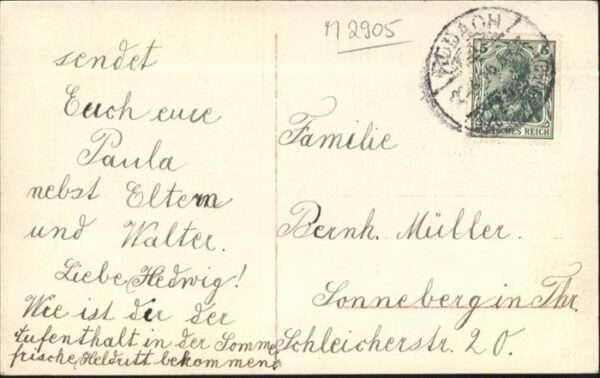 M 2905
sendet
Euch eure
Paula
nebst Eltern
und Walter.
Liebe Hedwig!
Wie ist dir der
Aufenthalt in der Sommer
frische Heldritt bekommen
Familie
Bernh. Müller.
Sonneberg in Thr.
Schleicherstr. 20.
5 5
DEUTSCHES REICH
RODACH